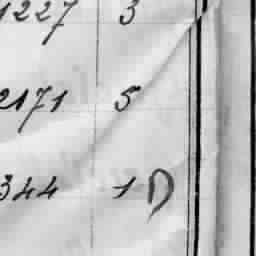 1227 3
2171 5
344 1 D